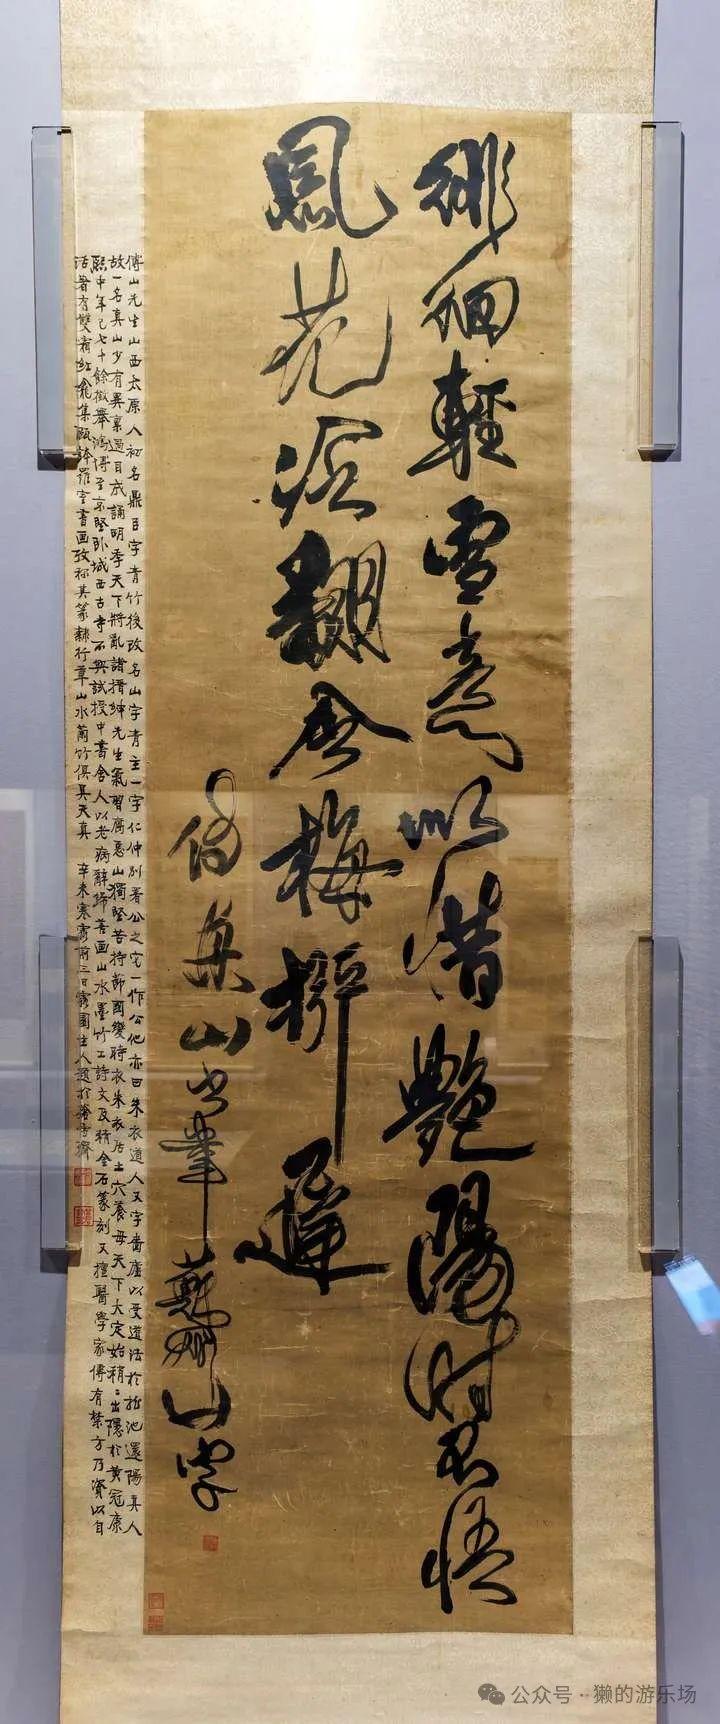 徘徊輕雪意似惜艷陽時不悟
風花冷翻令梅柳遲
山書
傅山先生山西太原人初名鼎臣字青竹後改名山字青主一字仁仲別署公之它一作公他亦曰朱衣道人又字嗇廬以受道法於龍池還陽真人
故一名真山少有異稟過目成誦明季天下將亂諸搢紳先生氣習腐惡山獨堅苦持節國變時衣朱衣居土穴養母天下大定始稍稍出隱於黃冠康
熙中年已七十餘徵舉鴻博至京堅卧城西古寺不與試授中書舍人以老病辭歸善画山水墨竹工詩文及精金石篆刻又擅醫學家傳有禁方乃資以自
活著有霜紅龕集頤鉢羅室書画攷稱其篆隸行草山水蘭竹俱具天真 辛未寒露前三日露園主人題於
公众号·獭的游乐场